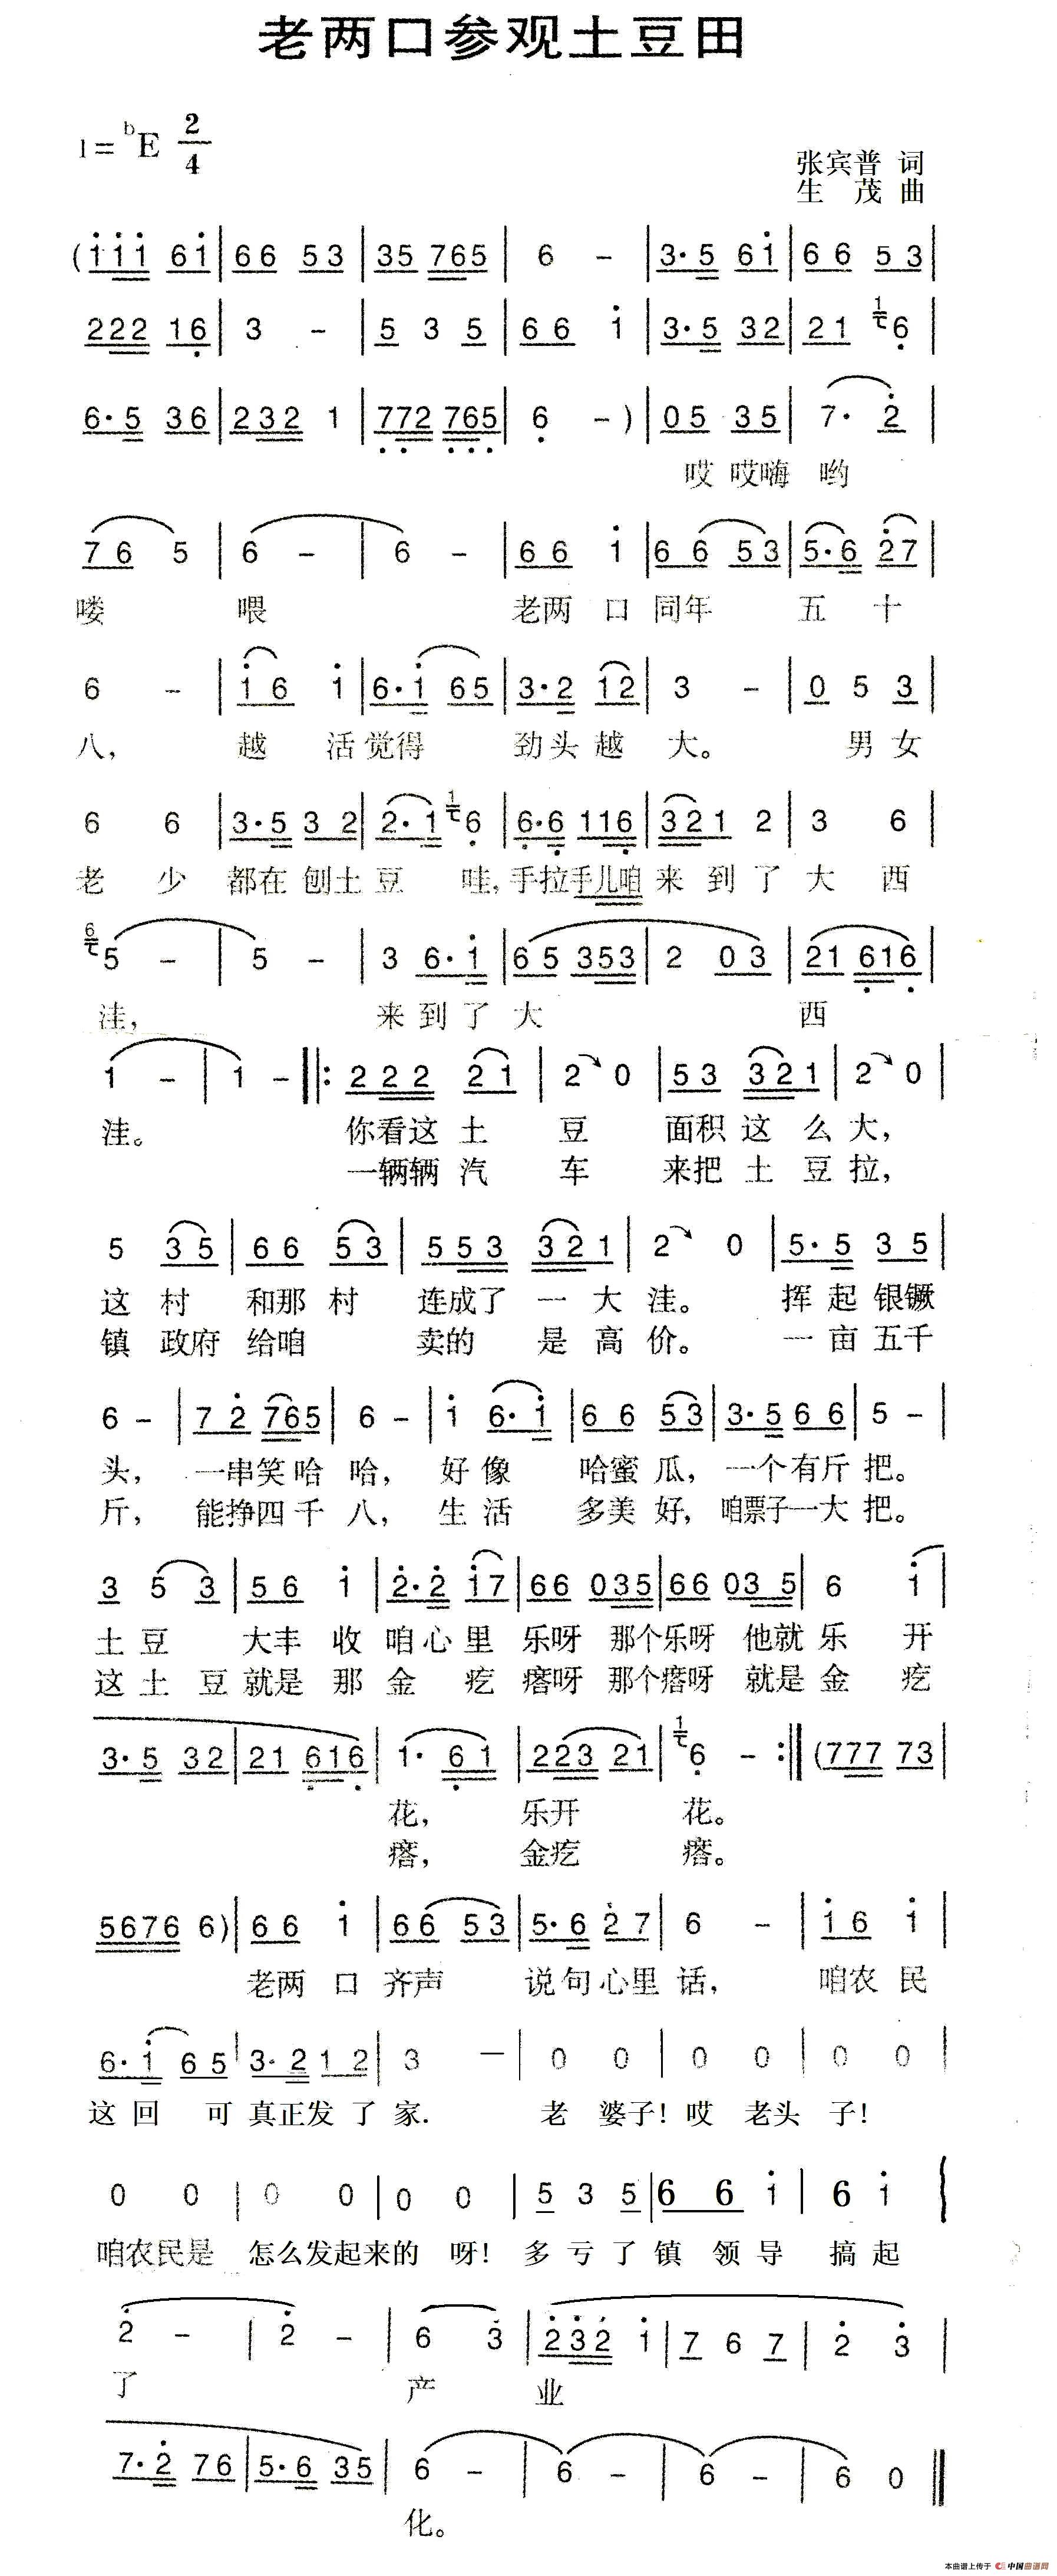 老两口参观土豆田
1=ᵇE 2/4
张宾普 词
生 茂 曲
(i i i 6 i | 6 6 5 3 | 3 5 7 6 5 | 6 - | 3· 5 6 i | 6 6 5 3 |
2 2 2 1 6 | 3 - | 5 3 5 | 6 6 i | 3· 5 3 2 | 2 1 6 |
6· 5 3 6 | 2 3 2 1 | 7 7 2 7 6 5 | 6 - ) | 0 5 3 5 | 7· 2 |
哎 哎嗨 哟
7 6 5 | 6 - | 6 - | 6 6 i | 6 6 5 3 | 5· 6 2 7 |
喽 喂 老两 口 同年 五 十
6 - | i 6 i | 6· i 6 5 | 3· 2 1 2 | 3 - | 0 5 3 |
八， 越 活 觉得 劲头 越 大。 男 女
6 6 | 3· 5 3 2 | 2· 1 6 | 6· 6 1 1 6 | 3 2 1 2 | 3 6 |
老 少 都在 刨土 豆 哇，手拉手儿咱 来 到 了 大 西
5 - | 5 - | 3 6· i | 6 5 3 5 3 | 2 0 3 | 2 1 6 1 6 |
洼， 来 到 了 大 西
1 - | 1 - ‖: 2 2 2 2 1 | 2 0 | 5 3 3 2 1 | 2 0 |
洼。 你看这 土 豆 面积 这 么 大，
一辆辆 汽 车 来把 土 豆 拉，
5 3 5 | 6 6 5 3 | 5 5 3 3 2 1 | 2 0 | 5· 5 3 5 |
这 村 和那 村 连成了 一 大 洼。 挥 起 银镢
镇 政府 给咱 卖的 是 高 价。 一 亩 五千
6 - | 7 2 7 6 5 | 6 - | i 6· i | 6 6 5 3 | 3· 5 6 6 | 5 - |
头， 一串笑 哈 哈， 好 像 哈蜜 瓜， 一个 有斤 把。
斤， 能挣四 千 八， 生 活 多美 好， 咱票子一大 把。
3 5 3 | 5 6 i | 2· 2 i 7 | 6 6 0 3 5 | 6 6 0 3 5 | 6 i |
土 豆 大丰 收 咱 心 里 乐呀 那个乐呀 他就 乐 开
这 土 豆 就是 那 金 疙 瘩呀 那个瘩呀 就是 金 疙
3· 5 3 2 | 2 1 6 1 6 | 1· 6 1 | 2 2 3 2 1 | 6 - :‖ (7 7 7 7 3 |
花， 乐开 花。
瘩， 金疙 瘩。
5 6 7 6 6 ) | 6 6 i | 6 6 5 3 | 5· 6 2 7 | 6 - | i 6 i |
老两 口 齐声 说句 心里 话， 咱农 民
6· i 6 5 | 3· 2 1 2 | 3 - | 0 0 | 0 0 | 0 0 |
这 回 可 真正发 了 家. 老 婆子！哎 老头 子！
0 0 | 0 0 | 0 0 | 5 3 5 | 6 6 i | 6 i
咱农民是 怎么发起来的 呀！ 多 亏 了 镇 领 导 搞 起
2 - | 2 - | 6 3 | 2 3 2 i | 7 6 7 | 2 3 |
了 产 业
7· 2 7 6 | 5· 6 3 5 | 6 - | 6 - | 6 - | 6 0 ‖
化。
本曲谱上传于 中国曲谱网